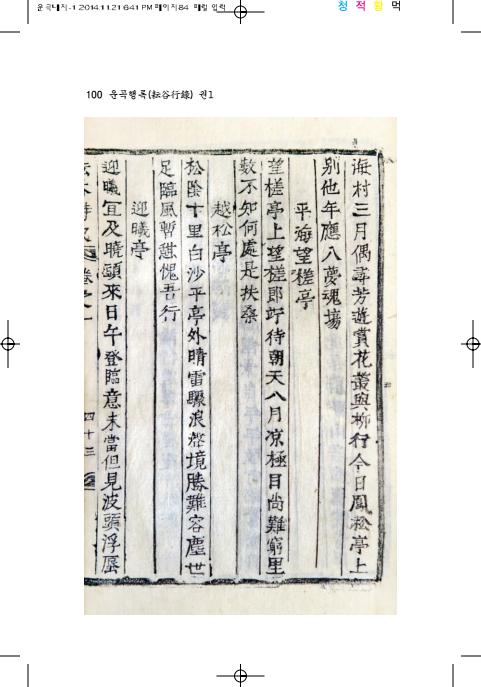 운곡대지-1 2014.11.21 6:41 PM 페이지84 매킬 입력
청 적 황 먹
100 운곡행록(耘谷行錄) 권1
海村三月偶尋芳遊賞花叢與柳行今日鳳松亭上
別他年應入夢魂場
平海望槎亭
望槎亭上望槎郞竚待朝天八月凉極目尙難窮里
數不知何處是扶桑
越松亭
松陰十里白沙平亭外晴雷驟浪聲境勝難容塵世
足臨風暫憩愧吾行
迎曦亭
迎曦宜及曉頭來日午登臨意未當但見波頭浮蜃
卷之一
四十三